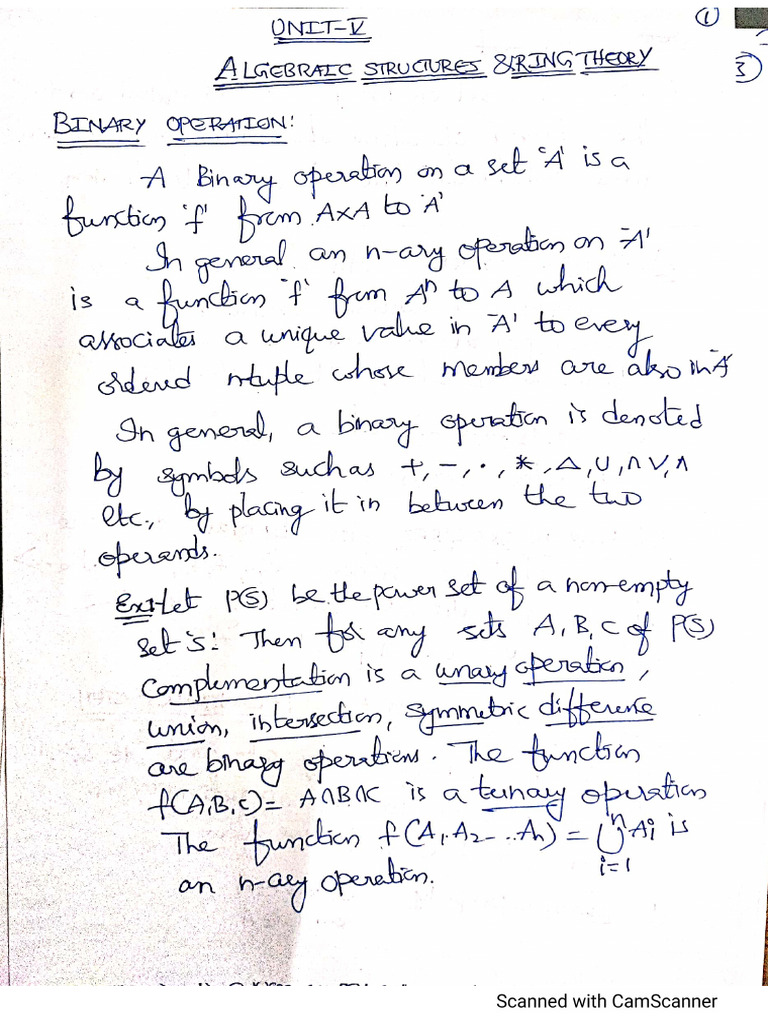 UNIT-V
①
ALGEBRAIC STRUCTURES & RING THEORY
3)
BINARY OPERATION:
A Binary operation on a set 'A' is a
function 'f' from A×A to 'A'
In general an n-ary operation on 'A'
is a function 'f' from Aⁿ to A which
associates a unique value in 'A' to every
ordered ntuple whose members are also in 'A'
In general, a binary operation is denoted
by symbols such as +, -, ·, *, △, ∪, ∩ ∨, ∧
etc., by placing it in between the two
operands.
Ex:- Let P(S) be the power set of a non-empty
set 'S'. Then for any sets A, B, C of P(S)
Complementation is a unary operation,
union, intersection, symmetric difference
are binary operations. The function
f(A, B, C) = A∩B∩C is a ternary operation
The function f(A₁ A₂ -- .. Aₙ) = ⋃ⁿᵢ₌₁ Aᵢ is
an n-ary operation.
Scanned with CamScanner